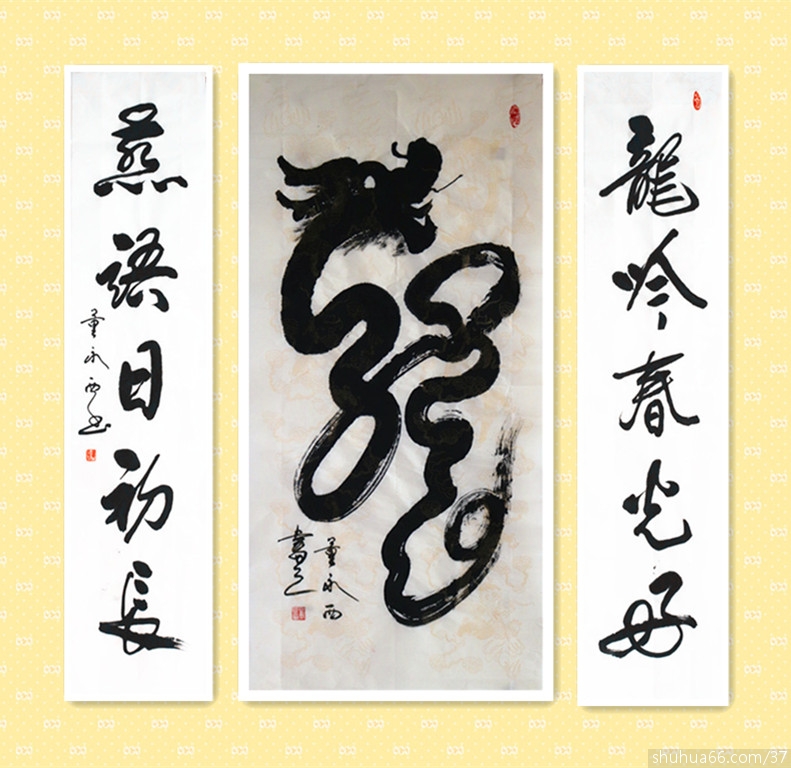 龍吟春光好
龍
董永西
書
燕語日初長
董永西书
shuhua66.com/37